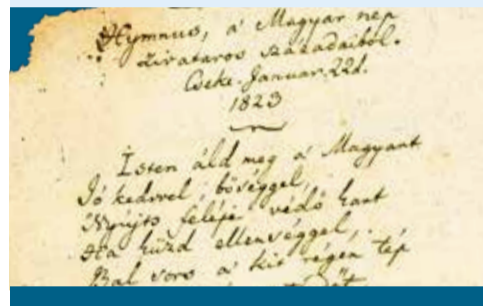 Hymnus, a' Magyar nep
zivataros századaiból.
Cseke. Januar. 22d.
1823
Isten áld meg a' Magyart
Jó kedvvel, bőséggel,
Nyújts feléje védő kart
Ha küzd ellenséggel,
Bal sors a' kit régen tép